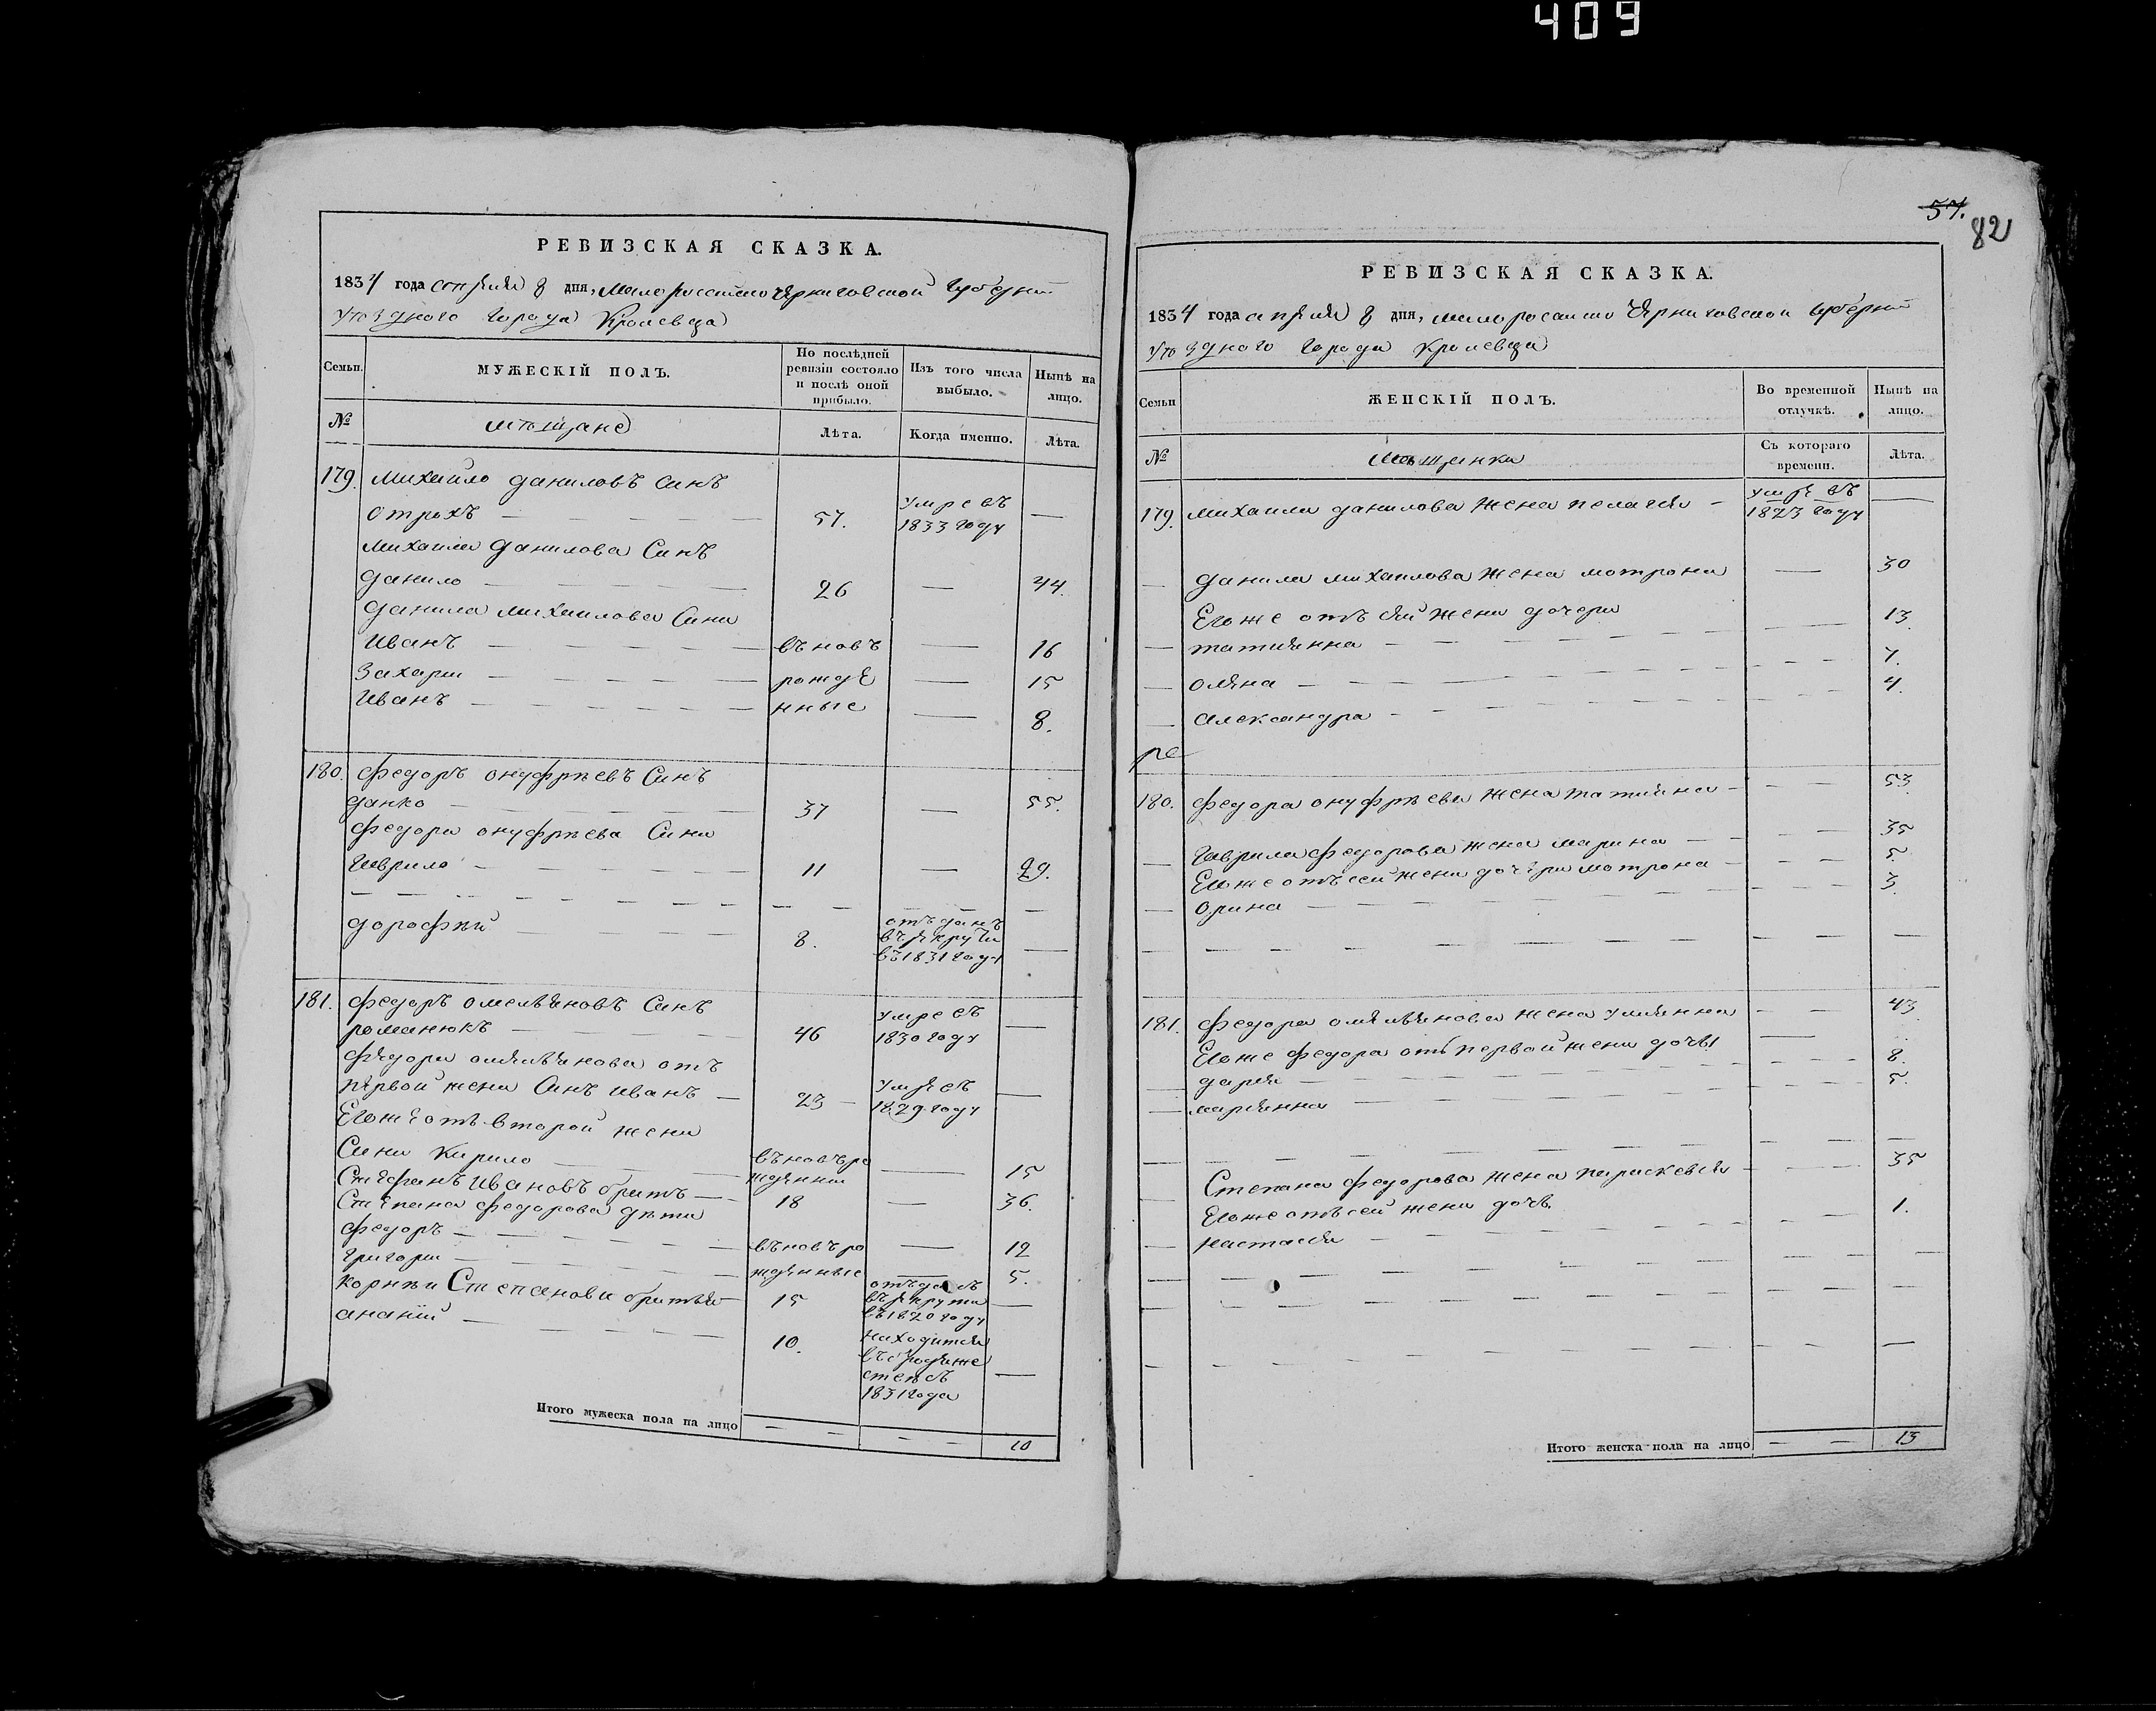 409
РЕВИЗСКАЯ СКАЗКА.
1834 года апреля 8 дня, малоросийско Черниговской губернии
уѣздного города Кролевца
Семьи.
МУЖЕСКІЙ ПОЛЪ.
По послѣдней ревизіи состояло и послѣ оной прибыло.
Изъ того числа выбыло.
Нынѣ на лицо.
№
мѣщане
Лѣта.
Когда именно.
Лѣта.
179. Михайло даниловъ Синъ
отрохъ — 57. умре въ 1833 году —
михаила данилова Синъ
данило — 26 — 44.
данила михаилова Сини
иванъ — въновъ — 16
Захари — рожде — 15
иванъ — нные — 8.
180. федоръ онуфрѣевъ Синъ
данко — 37 — 55.
федора онуфрѣева Сини
гаврило — 11 — 29.
дорофѣй — 8. отъданъ въ рекруты въ 1831 году —
181. федоръ омельяновъ Синъ
романюкъ — 46 умре въ 1830 году —
федора омельянова отъ
первой жени Синъ иванъ — 23 — умре въ 1829 году —
Егоже отъ второй жени
Сини кирило — въновъро ждении — 15
Стефанъ ивановъ братъ — 18 — 36.
Степана федорова дѣти
федоръ — въновъро — 12
григори — жденные — 5.
корнѣи Степанови братья — 15 отъданъ въ рекрути въ 1820 году —
ананій — 10. находится въ бродяжествѣ съ 1831 года —
Итого мужеска пола на лицо — — — — 10
57.
82
РЕВИЗСКАЯ СКАЗКА.
1834 года апреля 8 дня, малоросийско Черниговской губерни
уѣздного города Кролевца
Семьи
ЖЕНСКІЙ ПОЛЪ.
Во временной отлучкѣ.
Нынѣ на лицо.
№
Мѣщанки
Съ котораго времени.
Лѣта.
179. михаила данилова жена пелагея — умре въ 1823 году —
— данила михаилова жена мотрона — 30
Егоже отъ сей жени дочери
— татиянна — 13.
— оляна — 7.
— александра — 4.
180. федора онуфрѣева жена татияна — 53.
— гаврила федорова жена марина — 35
Егоже отъ сей жени дочери мотрона — 5.
— орина — 3.
181. федора омельянова жена улиянна — 43
Егоже федора отъ первой жени дочѣ
— дария — 8.
— мариянна — 5.
— Степана федорова жена параскевия — 35
Егоже отъ сей жени дочь.
— настасия — 1.
Итого женска пола на лицо — — 13